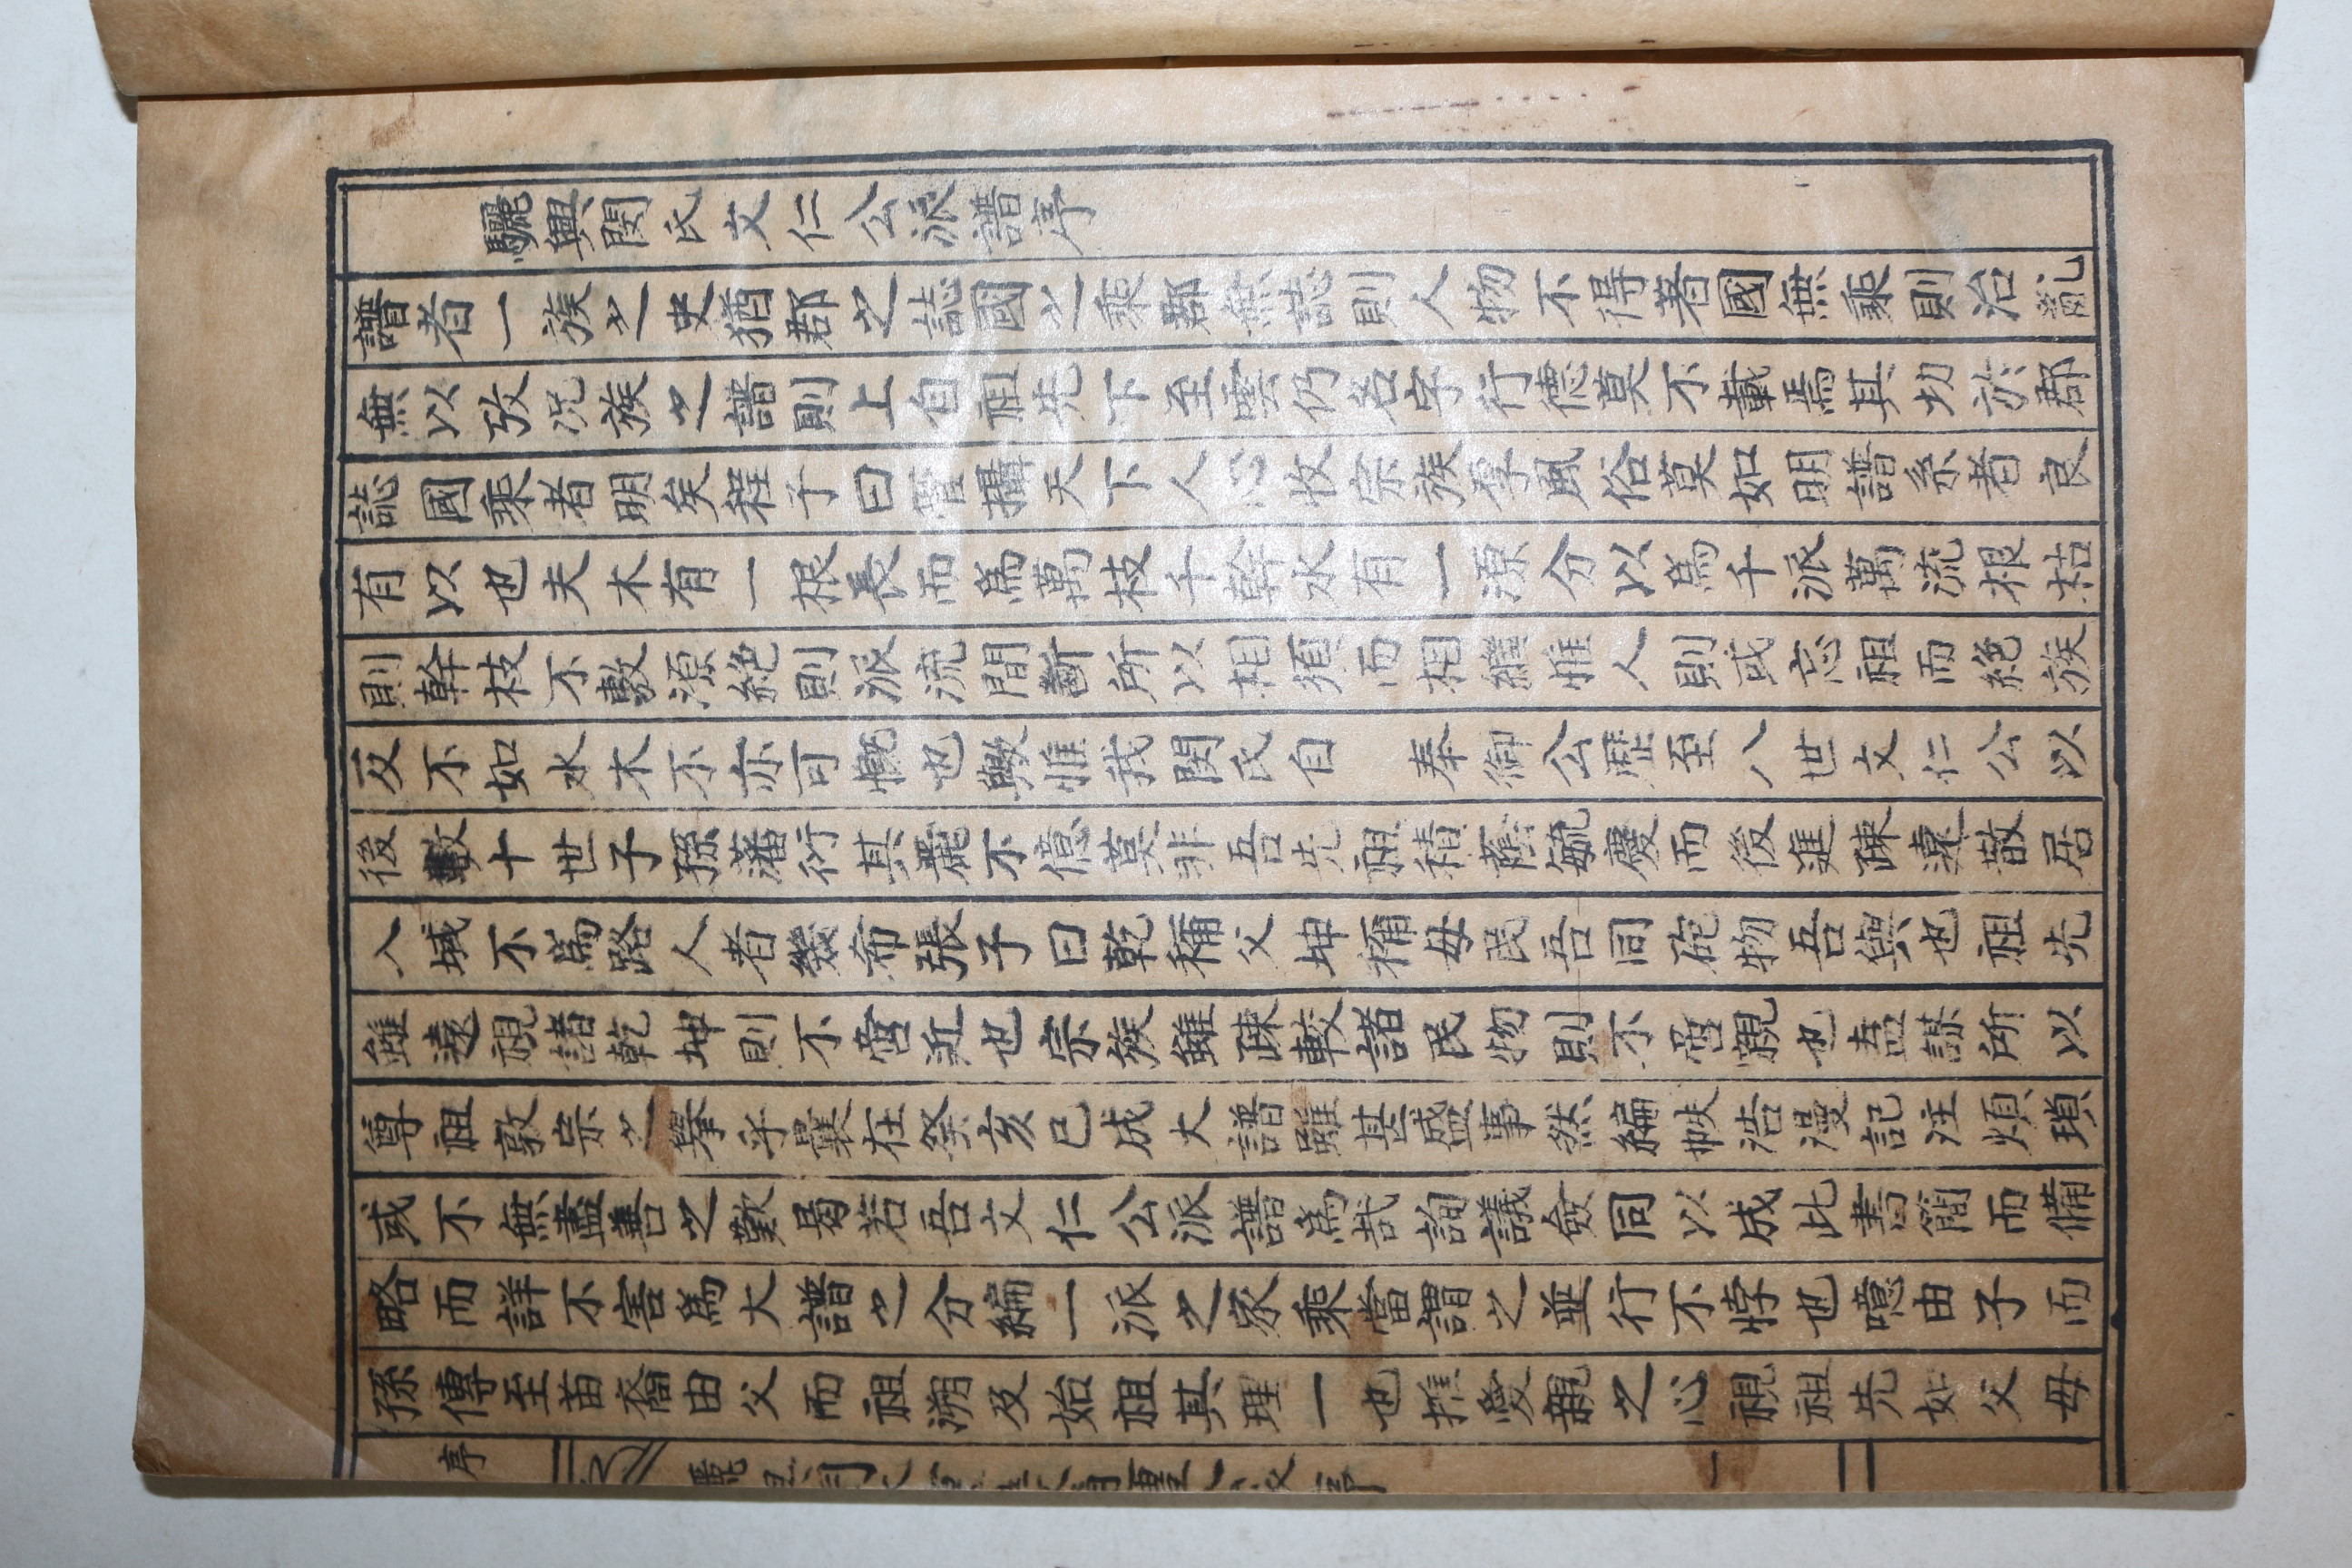 驪興閔氏文仁公派譜序
譜者一族之史猶郡之誌國之乘郡無誌則人物不得著國無乘則治亂
無以攷況族之譜則上自祖先下至雲仍名字行德莫不載焉其切於郡
誌國乘者明矣程子曰管攝天下人心收宗族厚風俗莫如明譜系者良
有以也夫木有一根長而爲萬枝千幹水有一源分以爲千派萬流根枯
則幹枝不敷源絶則派流間斷所以相須而相維惟人則或忘祖而絶族
反不如水木不亦可慨也歟惟我閔氏自 奉御公歷至八世文仁公以
後數十世子孫藩衍其麗不億莫非吾先祖積蔭毓慶而後進疎遠散居
入域不爲路人者幾希張子曰乾稱父坤稱母民吾同砲物吾與也祖先
雖遠視諸乾坤則不啻近也宗族雖疎較諸民物則不啻親也盍謀所以
尊祖敦宗之擧乎曩在癸亥已成大譜雖甚盛事然編帙浩漫記注煩瑣
或不無盡善之歎曷若吾文仁公派譜爲哉詢議僉同以成此書簡而備
略而詳不害爲大譜之分編一派之家乘當謂之並行不悖也噫由子而
孫傳至苗裔由父而祖溯及始祖其理一也推愛親之心視祖先如父母
序 一